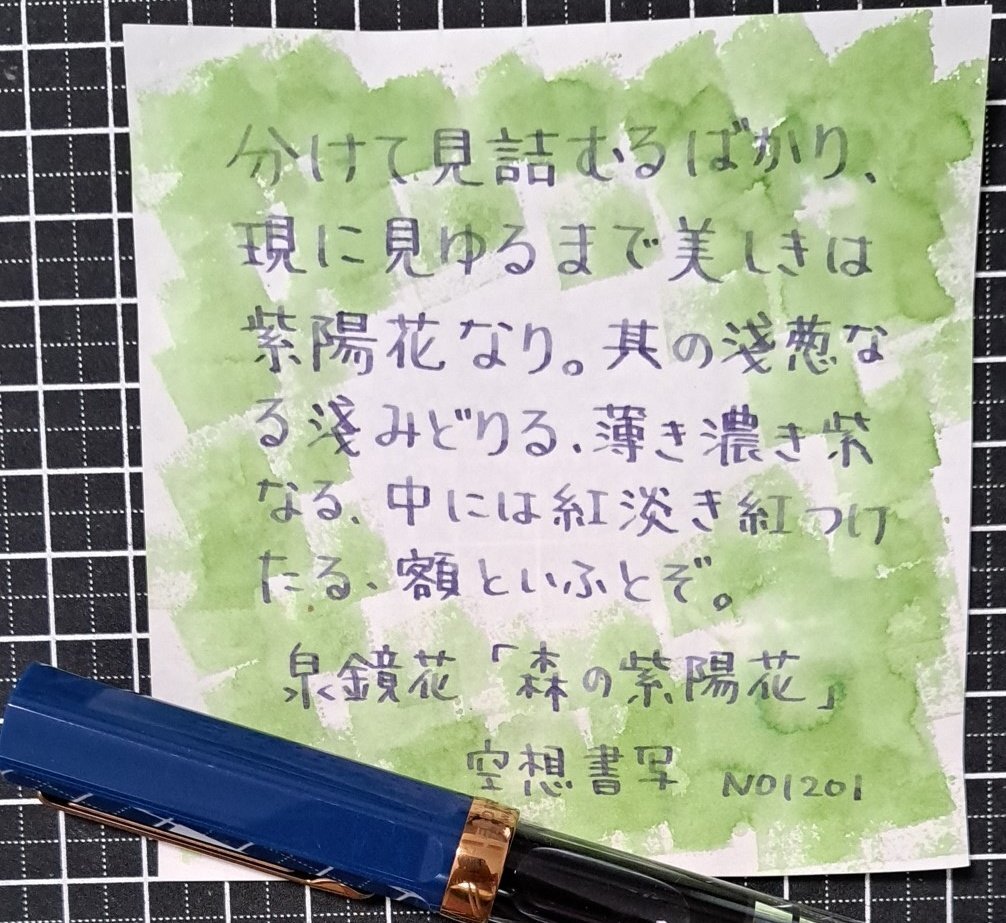 分けて見詰むるばかり、
現に見ゆるまで美しきは
紫陽花なり。其の淺葱な
る淺みどりる、薄き濃き紫
なる、中には紅淡き紅つけ
たる、額といふとぞ。
泉鏡花「森の紫陽花」
空想書写 NO1201